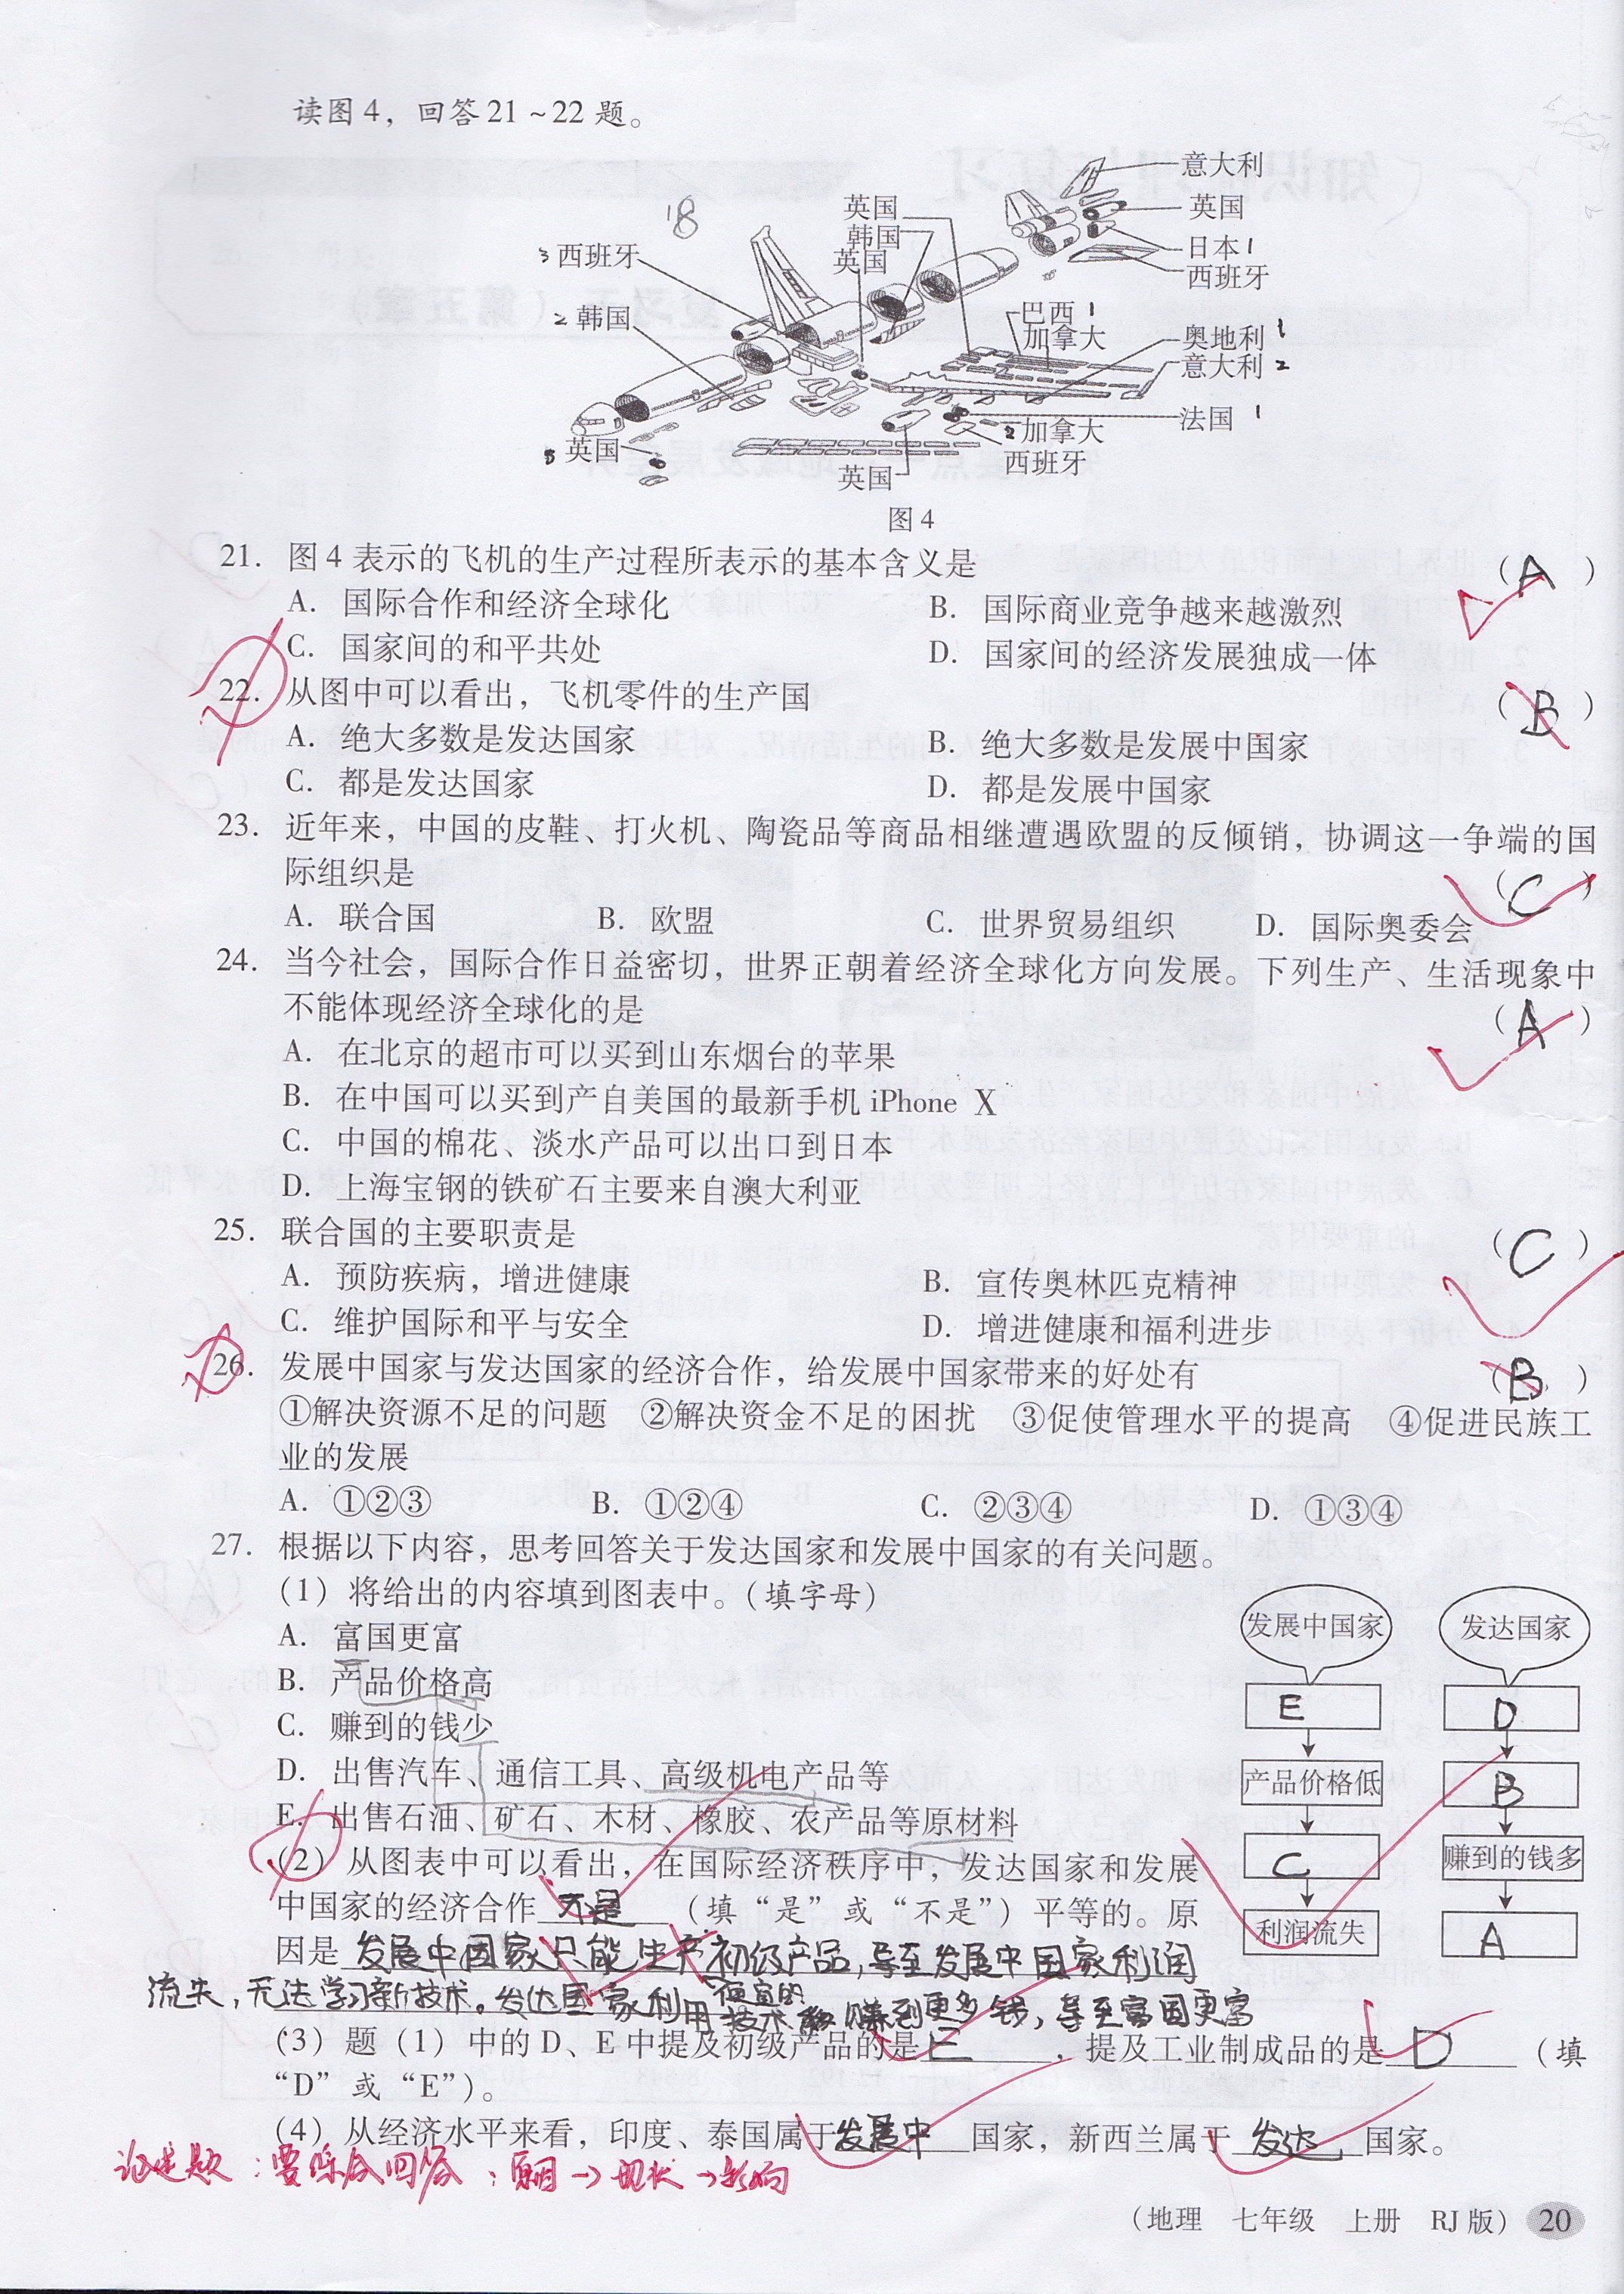 读图4，回答21~22题。
18
意大利
英国
英国
韩国
日本1
3西班牙
英国
西班牙
2韩国
巴西1
加拿大
奥地利1
意大利2
法国1
2加拿大
5英国
西班牙
英国
图4
21. 图4表示的飞机的生产过程所表示的基本含义是 (A)
A. 国际合作和经济全球化 B. 国际商业竞争越来越激烈
C. 国家间的和平共处 D. 国家间的经济发展独成一体
22. 从图中可以看出，飞机零件的生产国 (B)
A. 绝大多数是发达国家 B. 绝大多数是发展中国家
C. 都是发达国家 D. 都是发展中国家
23. 近年来，中国的皮鞋、打火机、陶瓷品等商品相继遭遇欧盟的反倾销，协调这一争端的国
际组织是 (C)
A. 联合国 B. 欧盟 C. 世界贸易组织 D. 国际奥委会
24. 当今社会，国际合作日益密切，世界正朝着经济全球化方向发展。下列生产、生活现象中
不能体现经济全球化的是 (A)
A. 在北京的超市可以买到山东烟台的苹果
B. 在中国可以买到产自美国的最新手机iPhone X
C. 中国的棉花、淡水产品可以出口到日本
D. 上海宝钢的铁矿石主要来自澳大利亚
25. 联合国的主要职责是 (C)
A. 预防疾病，增进健康 B. 宣传奥林匹克精神
C. 维护国际和平与安全 D. 增进健康和福利进步
26. 发展中国家与发达国家的经济合作，给发展中国家带来的好处有 (B)
①解决资源不足的问题 ②解决资金不足的困扰 ③促使管理水平的提高 ④促进民族工
业的发展
A. ①②③ B. ①②④ C. ②③④ D. ①③④
27. 根据以下内容，思考回答关于发达国家和发展中国家的有关问题。
(1) 将给出的内容填到图表中。(填字母)
A. 富国更富
B. 产品价格高
C. 赚到的钱少
D. 出售汽车、通信工具、高级机电产品等
E. 出售石油、矿石、木材、橡胶、农产品等原材料
发展中国家 发达国家
E D
产品价格低 B
C 赚到的钱多
利润流失 A
(2) 从图表中可以看出，在国际经济秩序中，发达国家和发展
中国家的经济合作 不是 (填“是”或“不是”) 平等的。原
因是 发展中国家只能生产初级产品，导至发展中国家利润
流失，无法学习新技术。发达国家利用便宜的技术 赚到更多钱，导至富国更富
(3) 题 (1) 中的D、E中提及初级产品的是 E ，提及工业制成品的是 D (填
“D”或“E”)。
(4) 从经济水平来看，印度、泰国属于 发展中 国家，新西兰属于 发达 国家。
：要综合回答：原因→现状→影响
(地理 七年级 上册 RJ版) 20